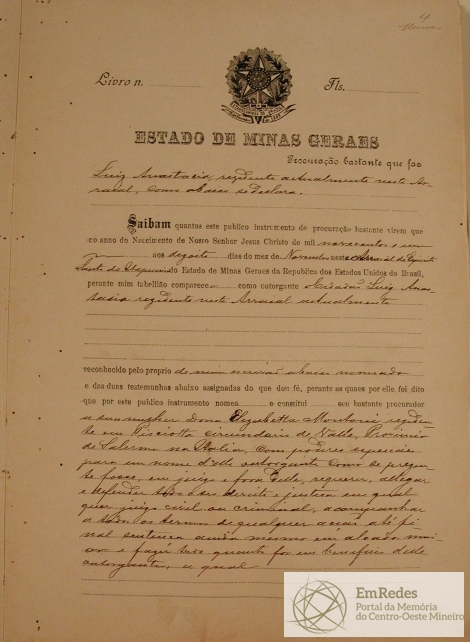 4
Livro n.
Fls.
ESTADO DE MINAS GERAES
Procuração bastante que faz
Luiz Anastacio, rezidente actualmente neste Ar-
raial, como abaixo se declara.
Saibam quantos este publico instrumento de procuração bastante virem que
no anno do Nascimento de Nosso Senhor Jesus Christo de mil novecentos e um
aos dezoito dias do mez de Novembro neste Arraial do Espirito
Santo do Itapecerica do Estado de Minas Geraes da Republica dos Estados Unidos do Brasil,
perante mim tabellião compareceo como outorgante o Cidadão Luiz Anas-
tacio rezidente neste Arraial actualmente
reconhecido pelo proprio de mim escrivão abaixo nomeado
e das duas testemunhas abaixo assignadas do que dou fé, perante as quaes por elle foi dito
que por este publico instrumento nomea e constitui seu bastante procurador
a sua mulher Dona Elizabetta Montoni reziden-
te em Pisciotta circundario de Vallo, Provincia
de Salerno na Italia, com poderes especiaes
para em nome d'elle outorgante como se prezen-
te fosse, em juizo e fora delle, requerer, allegar
e defender todo o seo direito e justiça em qual
quer juizo civil ou criminal, acompanhar
a todos os termos de qualquer acção até fi-
nal sentença ainda mesmo em alçada mai-
or e fazer tudo quanto for em beneficio delle
outorgante, a qual
EmRedes
Portal da Memória
do Centro-Oeste Mineiro